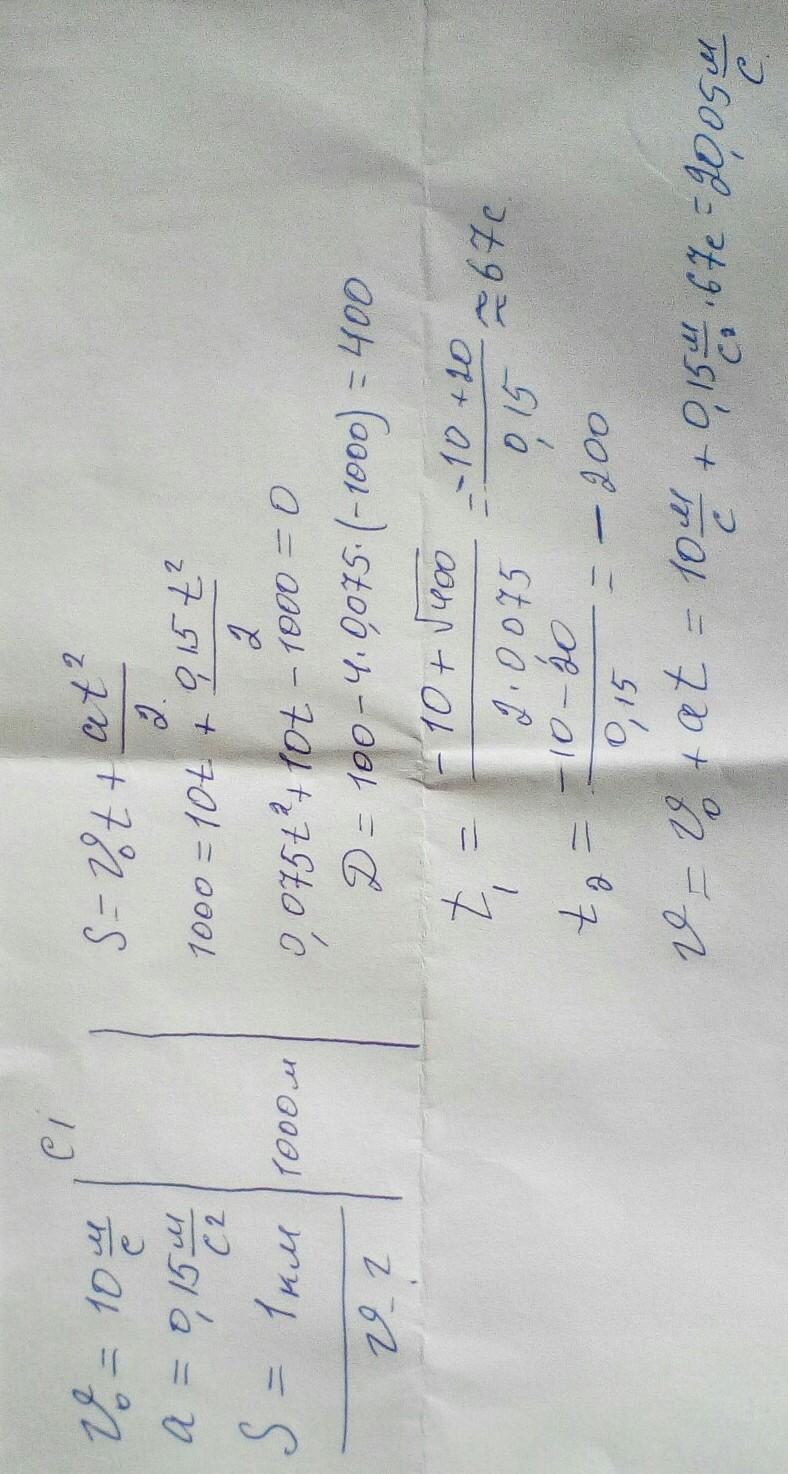 СИ
υ₀ = 10 м/с
a = 0,15 м/с²
S = 1 км
1000 м
υ - ?
S = υ₀t + at²/2
1000 = 10t + 0,15t²/2
0,075t² + 10t - 1000 = 0
D = 100 - 4·0,075·(-1000) = 400
t₁ = -10 + √400 / 2·0,075 = -10 + 20 / 0,15 ≈ 67с
t₂ = -10 - 20 / 0,15 = - 200
υ = υ₀ + at = 10 м/с + 0,15 м/с² · 67с = 20,05 м/с